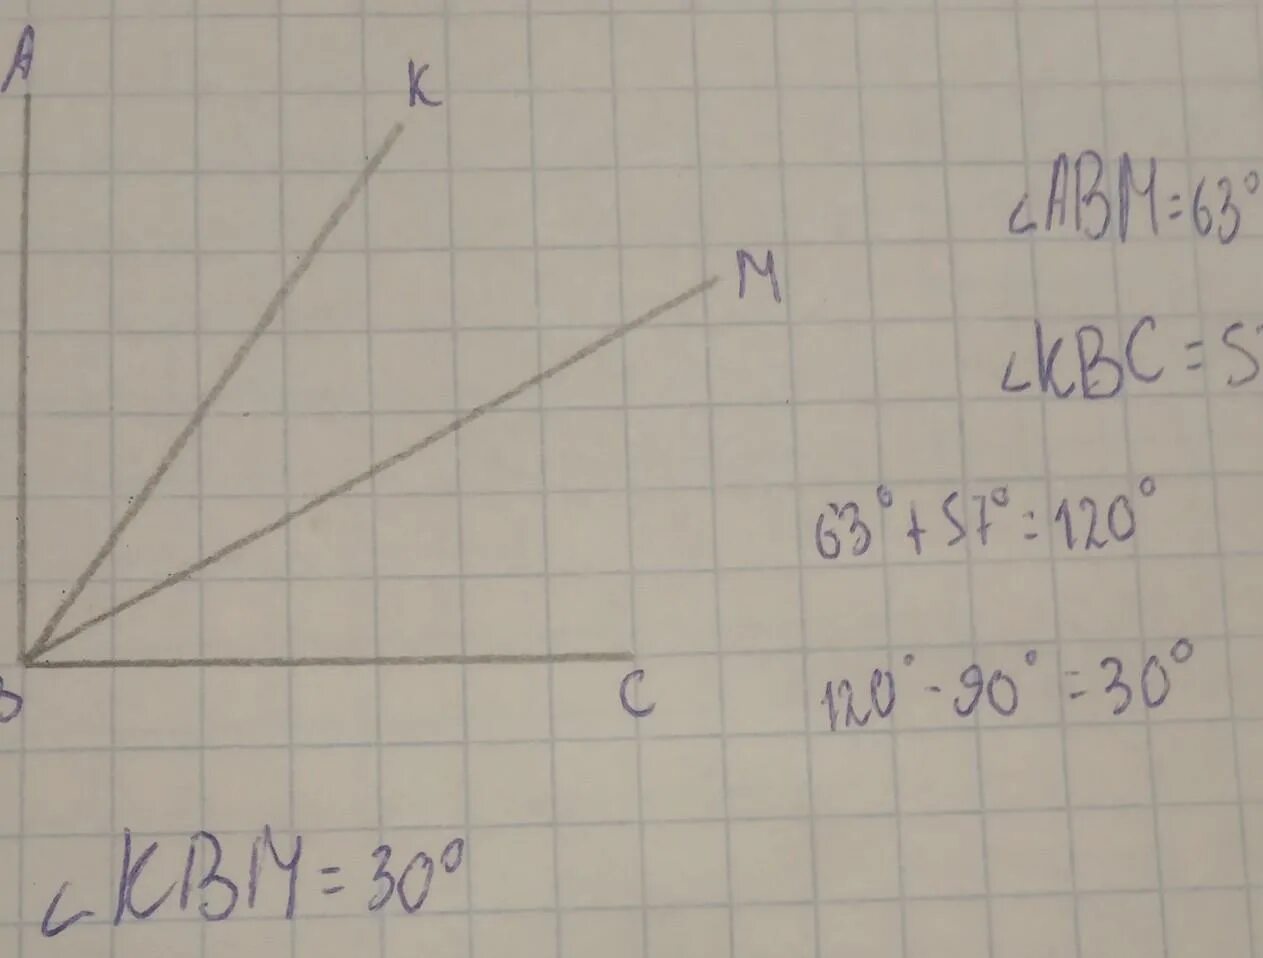 A
K
M
∠ABM=63°
∠KBC=5
63°+57°=120°
120°-90°=30°
B
C
∠KBM=30°